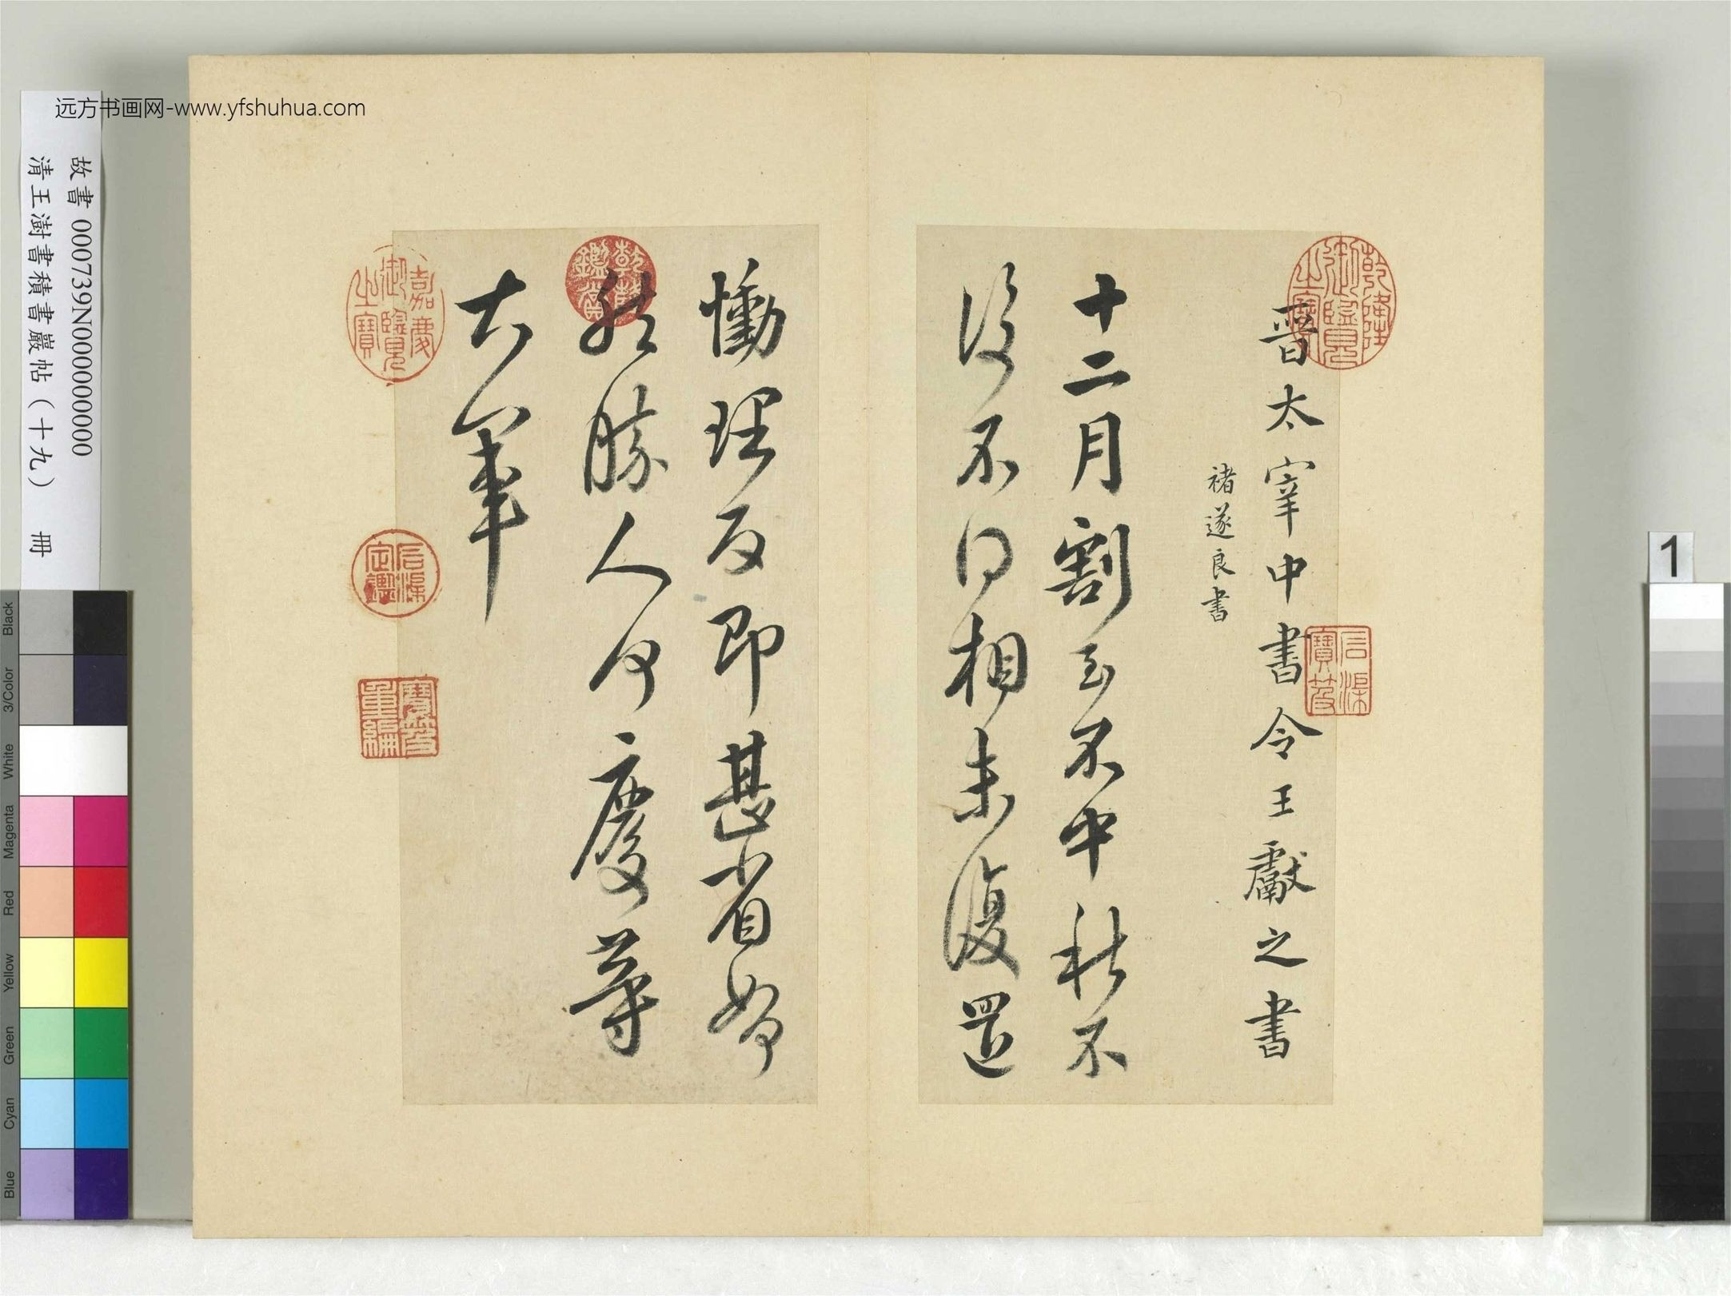 晉太宰中書令王獻之書
褚遂良書
十二月割至不中秋不
復不得相未復還
慟理反即甚省如
然勝人何慶等
大軍
乾隆御覽之寶
石渠寶笈
乾隆鑑賞
嘉慶御覽之寶
石渠定鑑
寶笈重編
远方书画网-www.yfshuhua.com
故書 000739N000000000
清王澍書積書巖帖（十九） 冊
Black
3/Color
White
Magenta
Red
Yellow
Green
Cyan
Blue
1